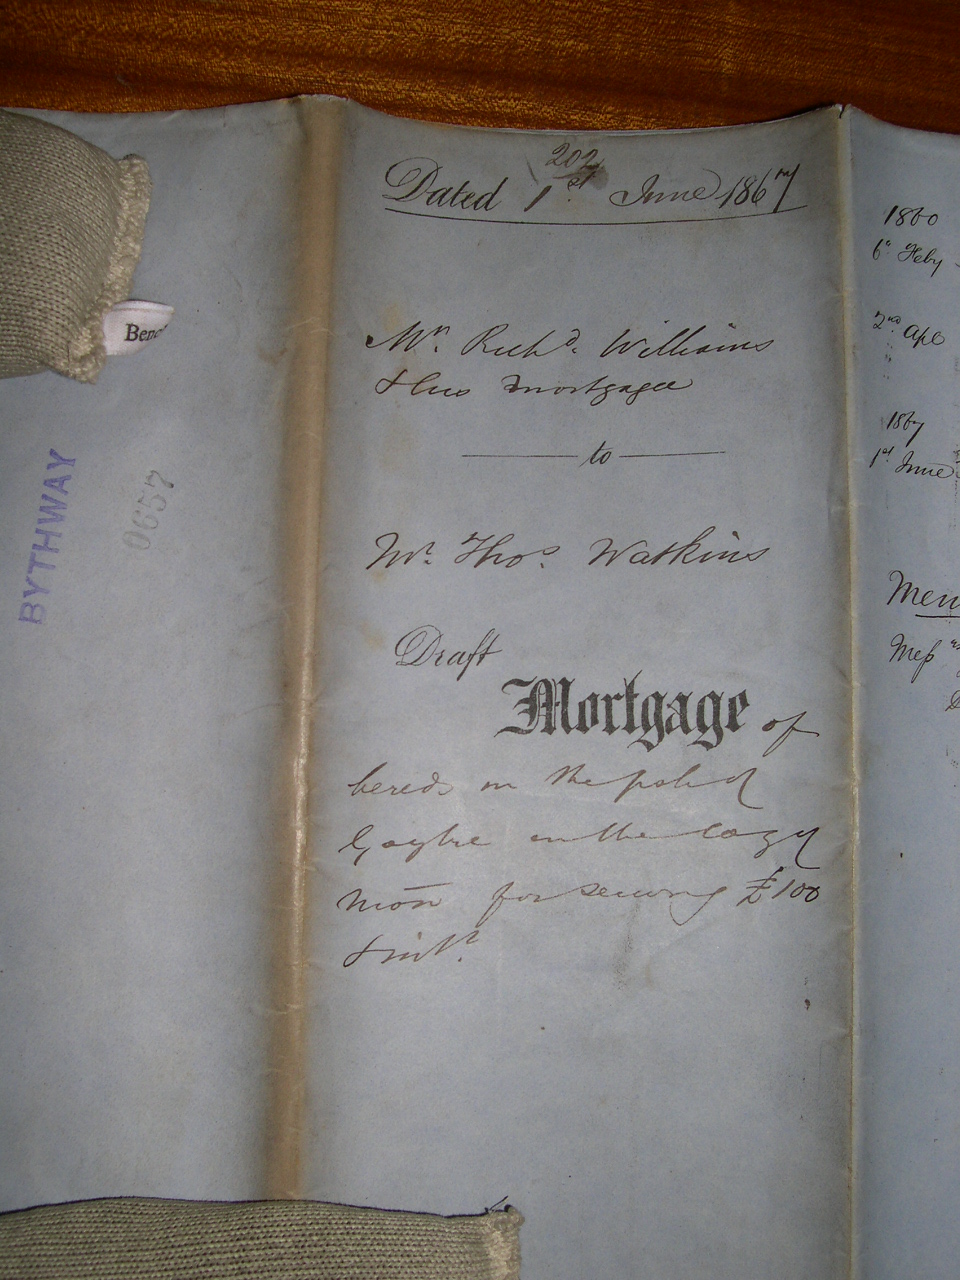 202
Dated 1st June 1867
Mr. Richd. Williams
& his mortgagee
to
Mr. Thos. Watkins
Draft
Mortgage of
hereds in the psh of
Goytre in the Coy of
Mon for securing £100
& int.
BYTHWAY
0657
1860
6th Feby
2nd Apl
1867
1st June
Mem
Mess